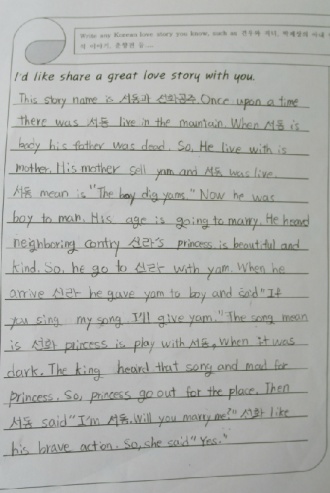 Write any Korean love story you know, such as 견우와 직녀, 박제상의 아내
의 이야기, 춘향전 등 ...
I'd like share a great love story with you.
This story name is 서동과 선화공주. Once upon a time
there was 서동 live in the mountain. When 서동 is
body his father was dead. So, He live with is
mother. His mother sell yam and 서동 was live.
서동 mean is "The boy dig yams." Now he was
boy to man. His age is going to marry. He heard
neighboring contry 신라's princess is beautiful and
kind. So, he go to 신라 with yam. When he
arrive 신라 he gave yam to boy and said "If
you sing my song I'll give yam." The song mean
is 선화 pircess is play with 서동, When it was
dark. The king heard that song and mad for
princess. So, princess go out for the place. Then
서동 said "I'm 서동. Will you marry me?" 선화 like
his brave action. So, she said "Yes."